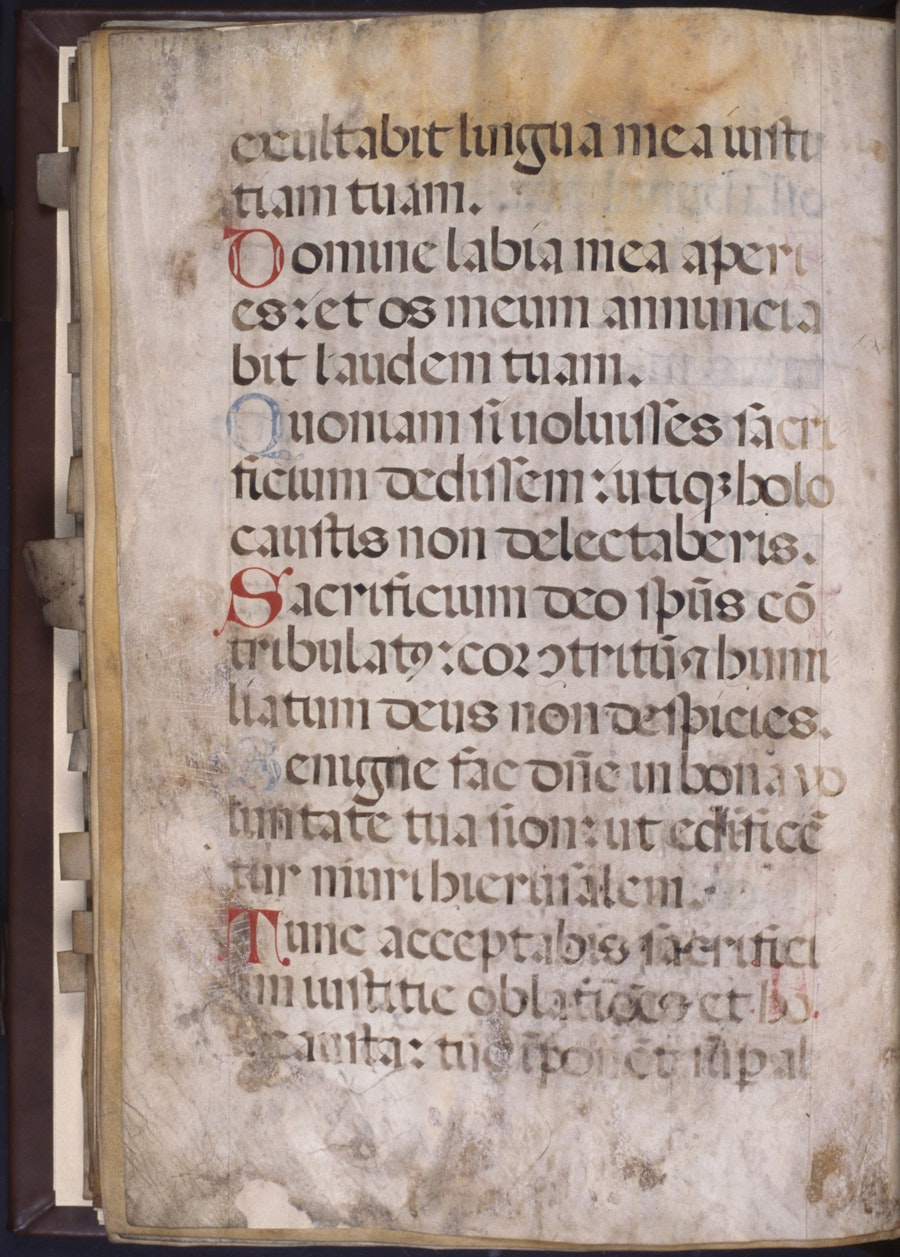 exultabit lingua mea iustu
tiam tuam.
Domine labia mea aperi
es: et os meum annuncia
bit laudem tuam.
Quoniam si uoluisses sacri
ficium dedissem: utiqꝫ holo
caustis non delectaberis.
Sacrificium deo sp̄us cō
tribulatꝯ: coꝛ ↄtritū ⁊ humi
liatum deus non despicies.
Benigne fac dn̄e in bona vo
luntate tua sion: ut edificē
tur muri hierusalem.
Tunc acceptabis sacrifici
um iustitie oblatiōes et ho
causta: tūc īponēt